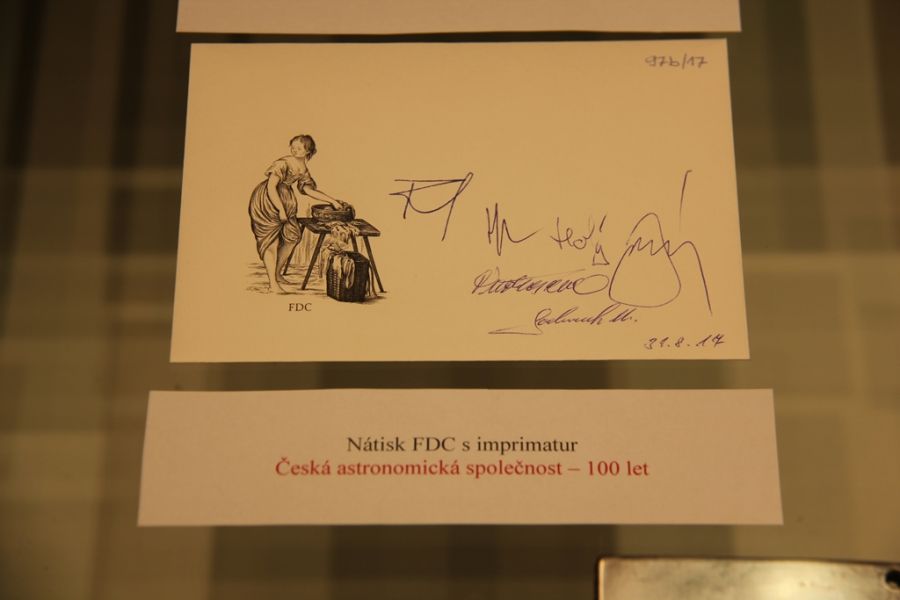 97b/17
FDC
31.8.17
Nátisk FDC s imprimatur
Česká astronomická společnost – 100 let